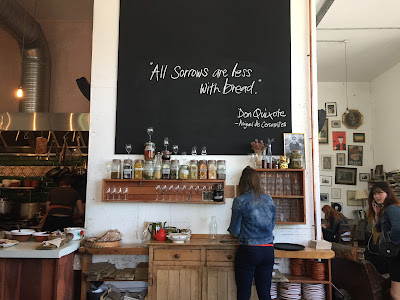 "All Sorrows are less
with bread."
Don Quixote
- Miguel de Cervantes